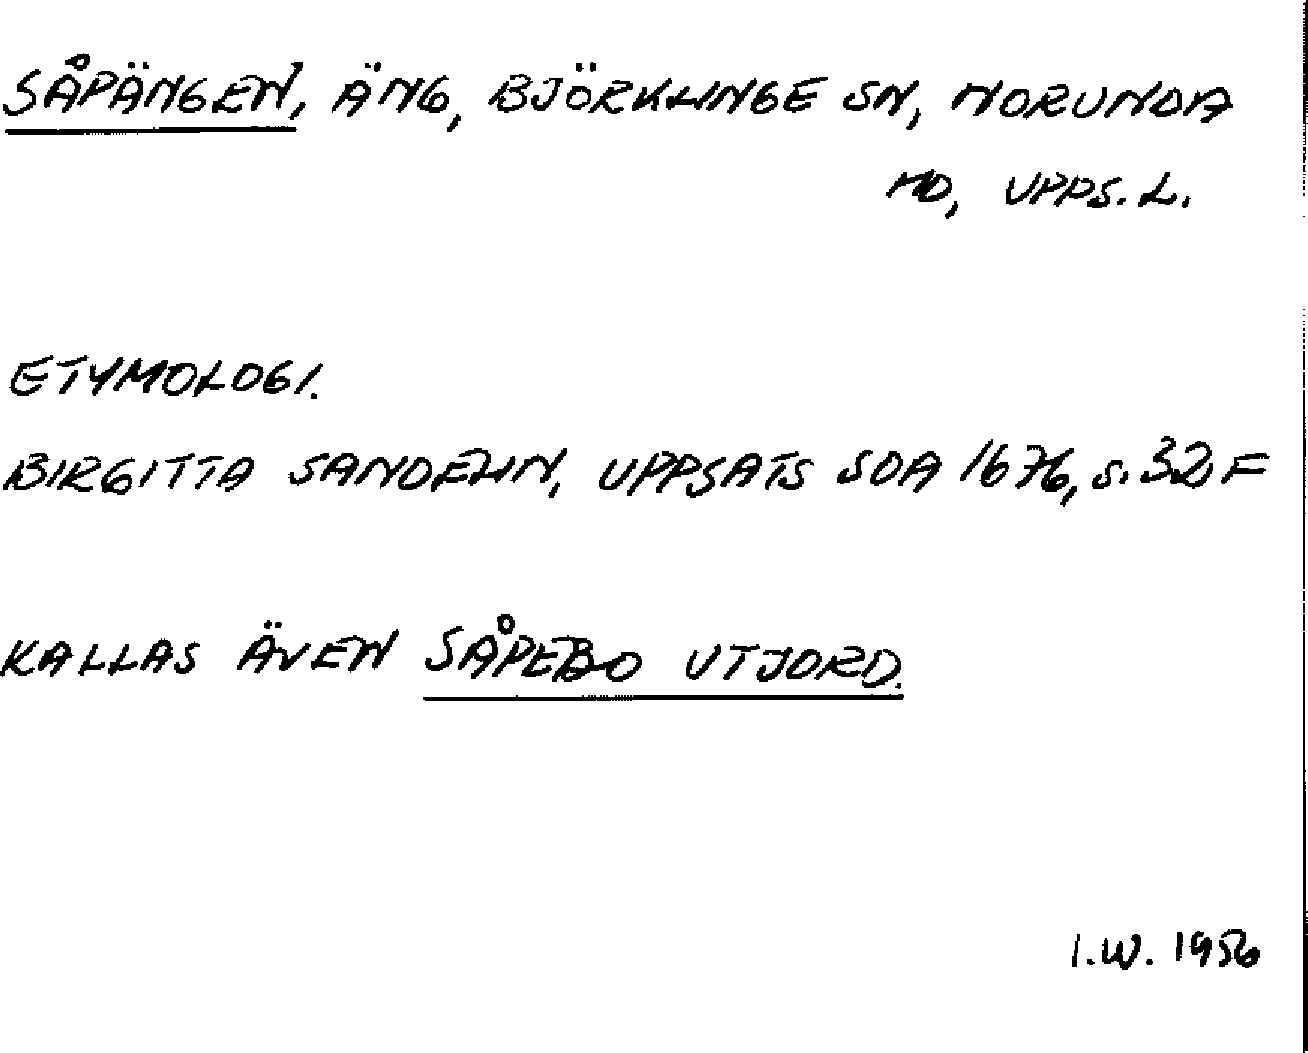 SÅPÄNGEN, ÄNG, BJÖRKLINGE SN, NORUNDA
HD, UPPS. L.
ETYMOLOGI.
BIRGITTA SANDELIN, UPPSATS SOA 1676, S. 32 F
KALLAS ÄVEN SÅPEBO UTJORD.
I.W. 1956